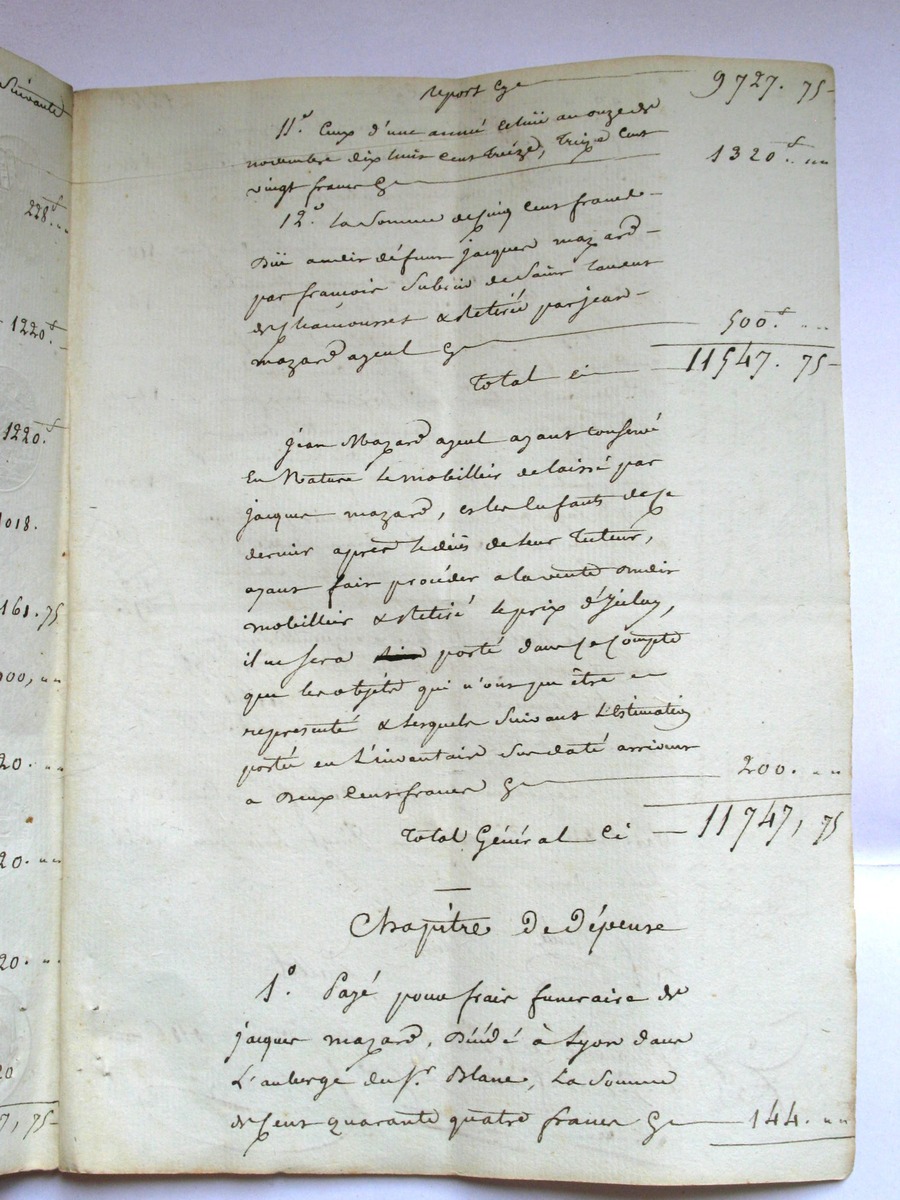 Suivante
228.f ..
1220.f
1220.f
1018.
161.75
00, ..
20. ..
20. ..
20. ..
20
7,75
report Cy 9727. 75
11.o Ceux d'une année échüe au onze de
novembre dix huit cent treize, treize cent
vingt francs Cy 1320.f ..
12.o La Somme de cinq cent francs
Düe au dit défunt jacques mazard
par françois Subrin de Saint Laurent
de Chamousset & retirée par jean
mazard ayeul Cy 500.f ...
Total ci 11547. 75
jean Mazard ayeul ayant conservé
En Nature Le mobillier delaissé par
jacques mazard, et les Enfants de ce
dernier après le décès de Leur Tuteur,
ayant fait procéder a la vente dudit
mobillier & retiré Le prix d'Iceluy,
il ne sera porté dans ce Compte
que les objets qui n'ont pu être en
representé & Lesquels Suivant L'Estimation
portée en L'inventaire Sus daté arrivent
a Deux Cents francs Cy 200. ..
Total Général Ci 11747, 75
Chapitre De dépense
1.o Payé pour frais funeraire de
jacques mazard, Décédé à Lyon dans
L'auberge du Sr. Blanc, La Somme
de Cent quarante quatre francs Cy 144. ..